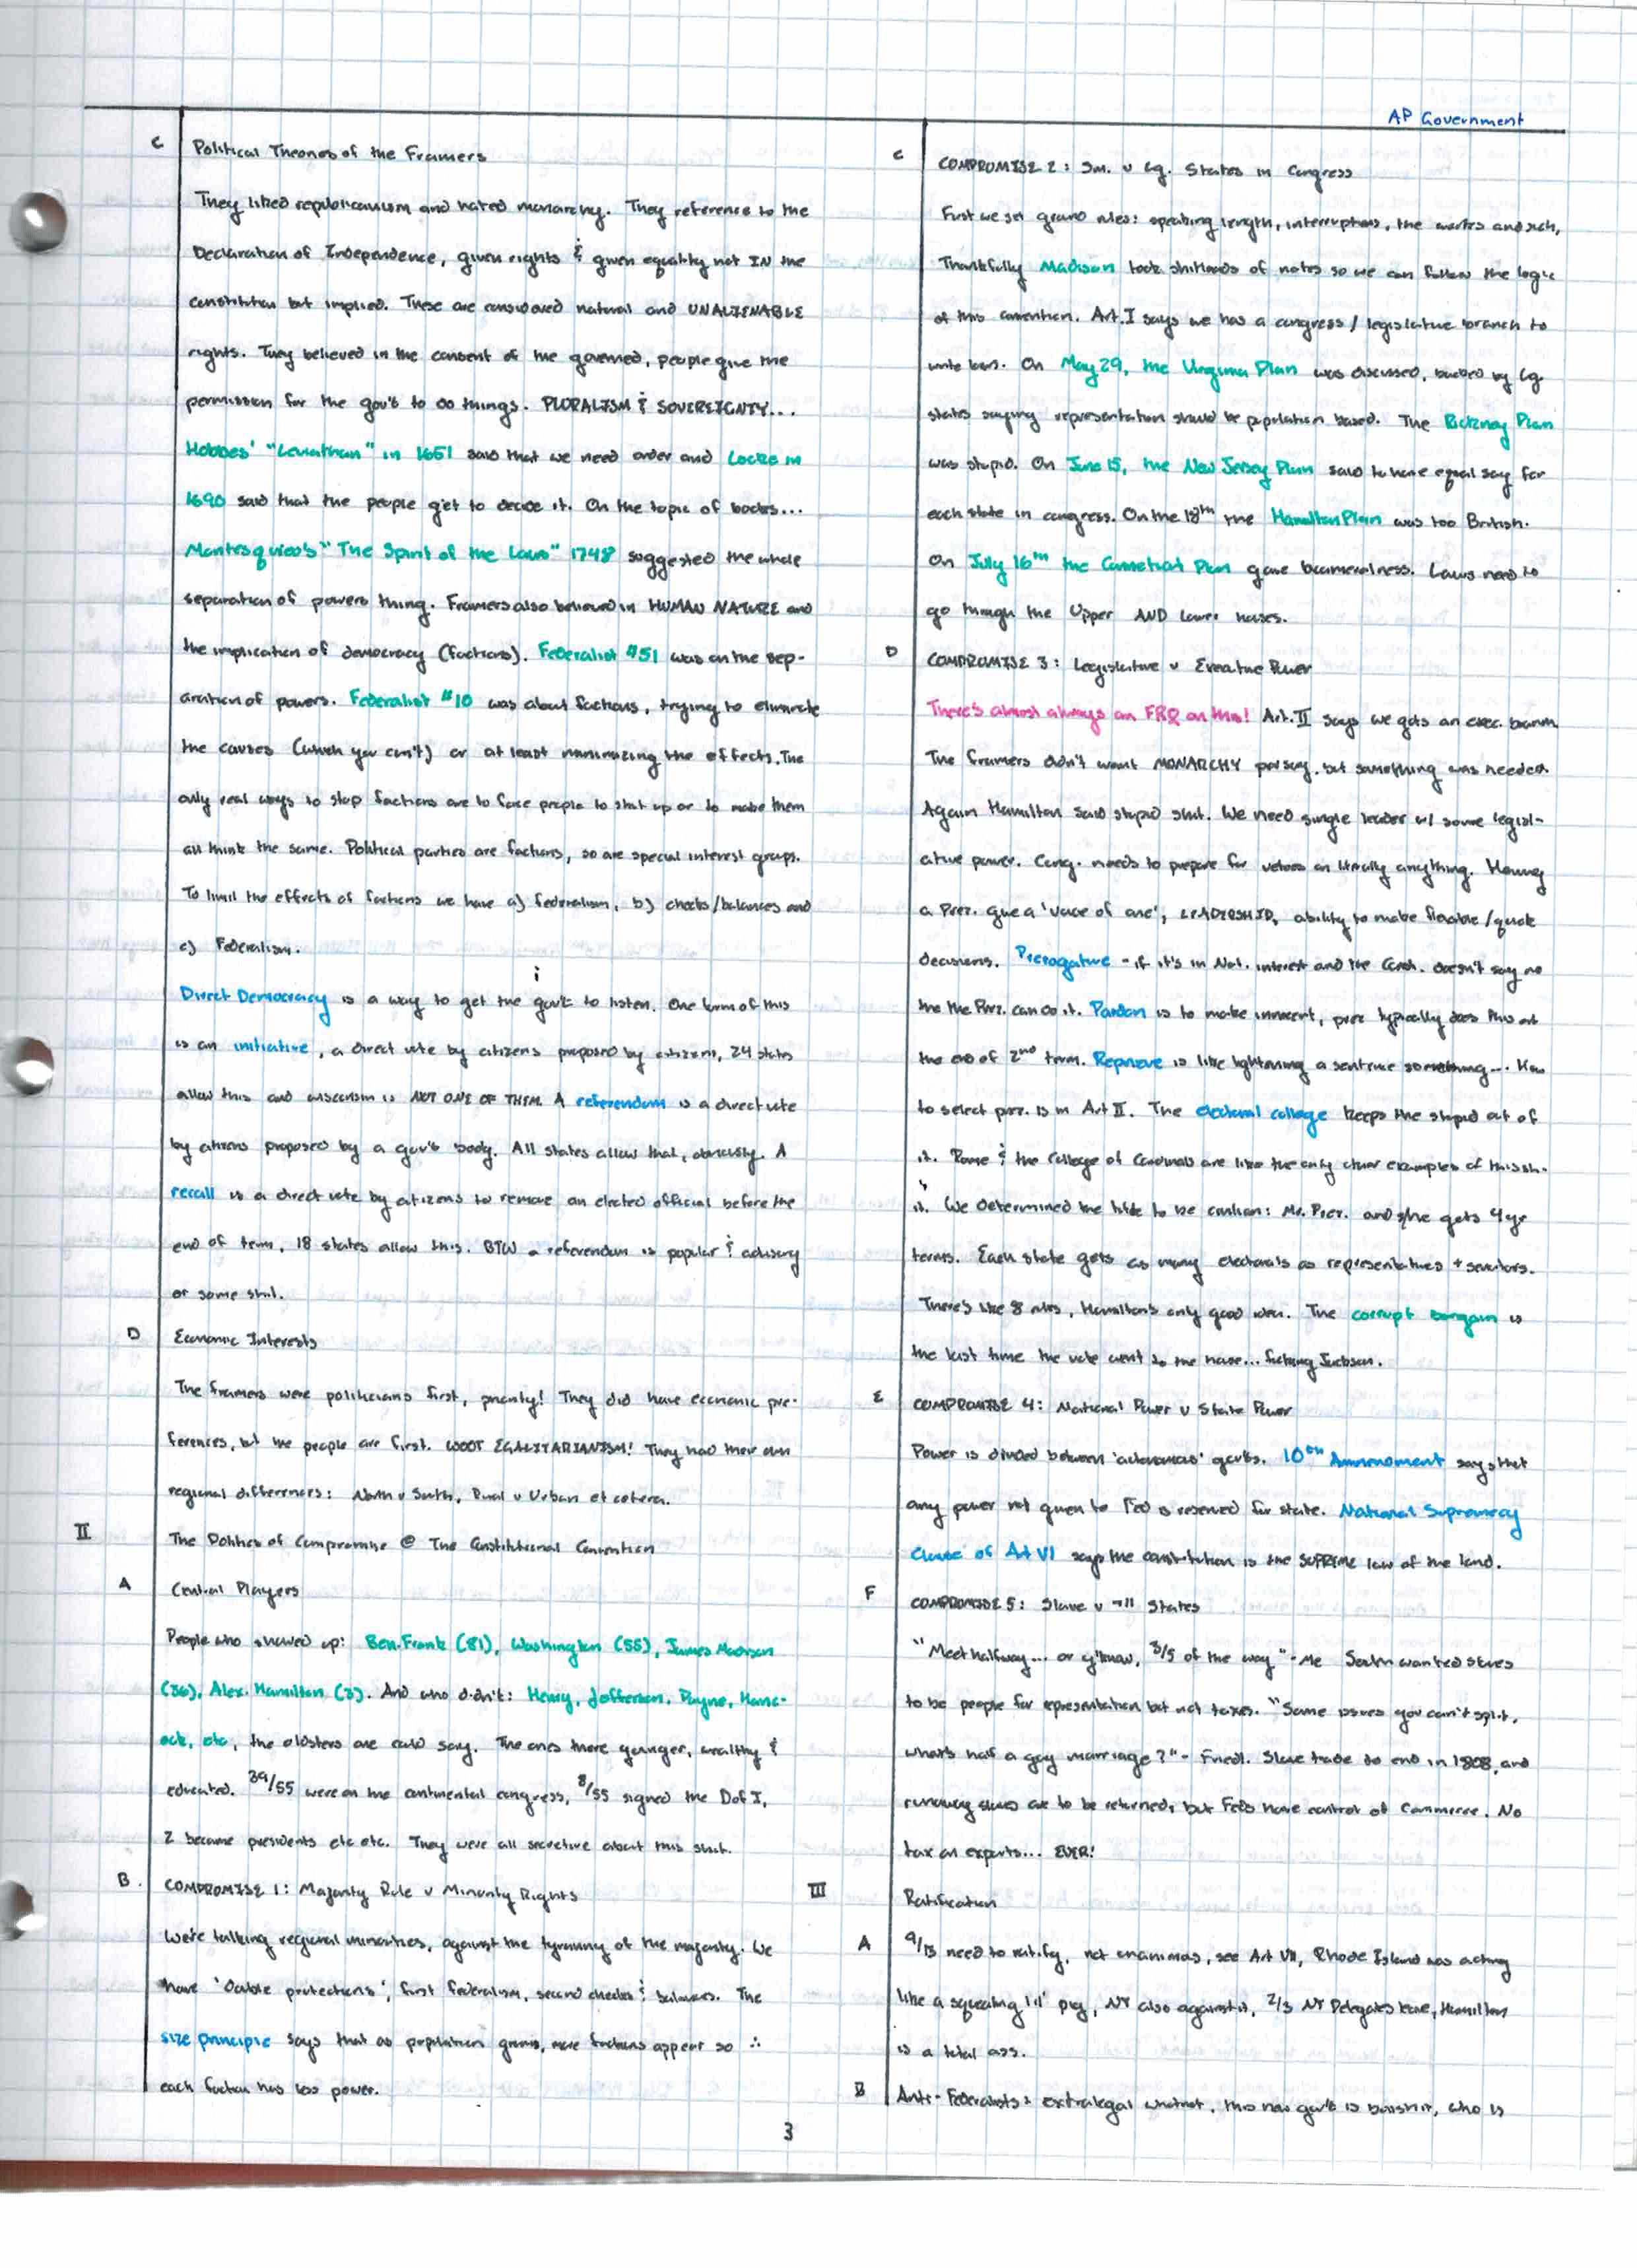 AP Government
C Political Theories of the Framers
They liked republicanism and hated monarchy. They reference to the
Declaration of Independence, given rights & given equality not IN the
constitution but implied. These are considered natural and UNALIENABLE
rights. They believed in the consent of the governed, people give the
permission for the gov't to do things. PLURALISM & SOVEREIGNTY...
Hobbes' "Leviathan" in 1651 said that we need order and Locke in
1690 said that the people get to decide it. On the topic of books...
Montesquieu's "The Spirit of the Laws" 1748 suggested the whole
separation of powers thing. Framers also believed in HUMAN NATURE and
the implication of democracy (factions). Federalist #51 was on the sep-
aration of powers. Federalist #10 was about factions, trying to eliminate
the causes (which you can't) or at least minimizing the effects. The
only real ways to stop factions are to force people to shut up or to make them
all think the same. Political parties are factions, so are special interest groups.
To limit the effects of factions we have a) federalism, b) checks/balances and
c) Federalism.
Direct Democracy is a way to get the gov't to listen. One form of this
is an initiative, a direct vote by citizens proposed by citizens, 24 states
allow this and wisconsin is NOT ONE OF THEM. A referendum is a direct vote
by citizens proposed by a gov't body. All states allow that, obviously. A
recall is a direct vote by citizens to remove an elected official before the
end of term, 18 states allow this. BTW a referendum is popular & advisory
or some shit.
D Economic Interests
The framers were politicians first, priority! They did have economic pre-
ferences, but the people are first. WOOT EGALITARIANISM! They had their own
regional differences: North v South, Rural v Urban et cetera.
II The Politics of Compromise @ The Constitutional Convention
A Central Players
People who showed up: Ben-Frank (81), Washington (55), James Madison
(36), Alex. Hamilton (3). And who didn't: Henry, Jefferson, Payne, Hanc-
ock, etc, the oldsters one could say. The ones there younger, wealthy &
educated. 39/55 were on the continental congress, 8/55 signed the D of I,
2 became presidents etc etc. They were all secretive about this shit.
B. COMPROMISE 1: Majority Rule v Minority Rights
We're talking regional minorities, against the tyranny of the majority. We
have 'double protections', first federalism, second checks & balances. The
size principle says that as population grows, more factions appear so ∴
each faction has less power.
C COMPROMISE 2: Sm. v Lg. States in Congress
First we set ground rules: speaking length, interruptions, the works and such,
Thankfully Madison took shitloads of notes so we can follow the logic
of this convention. Art. I says we has a congress / legislative branch to
write laws. On May 29, the Virginia Plan was discussed, backed by lg.
states saying representation should be population based. The Pickney Plan
was stupid. On June 15, the New Jersey Plan said to have equal say for
each state in congress. On the 18th the Hamilton Plan was too British.
On July 16th the Conneticut Plan gave bicameralness. Laws need to
go through the Upper AND Lower houses.
D COMPROMISE 3: Legislative v Executive Power
There's almost always an FRQ on this! Art. II says we gots an exec. branch
The framers didn't want MONARCHY but something was needed.
Again Hamilton said stupid shit. We need single leader w/ some legisl-
ative power. Cong. needs to prepare for vetoes on literally anything. Having
a Prez. give a 'voice of one', LEADERSHIP, ability to make flexible/quick
decisions. Prerogative - if it's in Nat. interest and the Const. doesn't say no
the the Prez. can do it. Pardon is to make innocent, prez typically does this at
the end of 2nd term. Reprieve is like lightening a sentence something... How
to select prez. is in Art II. The electoral college keeps the stupid out of
it. Rome & the College of Cardinals are like the only other examples of this sh-
it. We determined the title to be civilian: Mr. Prez. and s/he gets 4 yr
terms. Each state gets as many electorals as representatives + senators.
There's like 8 rules, Hamilton's only good idea. The corrupt bargain is
the last time the vote went to the house... fucking Jackson.
E COMPROMISE 4: National Power v State Power
Power is divided between 'autonomous' gov'ts. 10th Ammendment says that
any power not given to Fed is reserved for state. National Supremacy
Clause of Art VI says the constitution is the SUPREME law of the land.
F COMPROMISE 5: Slave v ¬" States
"Meet halfway... or y'know, 3/5 of the way" - Me South wanted slaves
to be people for representation but not taxes. "Some issues you can't split,
what's half a gay marriage?" - Friedl. Slave trade to end in 1808, and
runaway slaves are to be returned, but Feds have control of Commerce. No
tax on exports... EVER!
III Ratification
A 9/13 need to ratify, not unanimous, see Art VII, Rhode Island was acting
like a squealing lil' pig, NY also against it, 2/3 NY Delegates leave, Hamilton
is a total ass.
B Anti-Federalists: extralegal whatnot, this new gov't is bullshit, who is
3